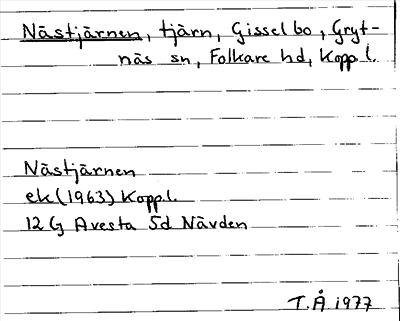 Nästjärnen, tjärn, Gisselbo, Gryt-
näs sn, Folkare hd, Kopp.l.
Nästjärnen
ek (1963) Kopp.l.
12 G Avesta 5d Nävden
T.Å 1977